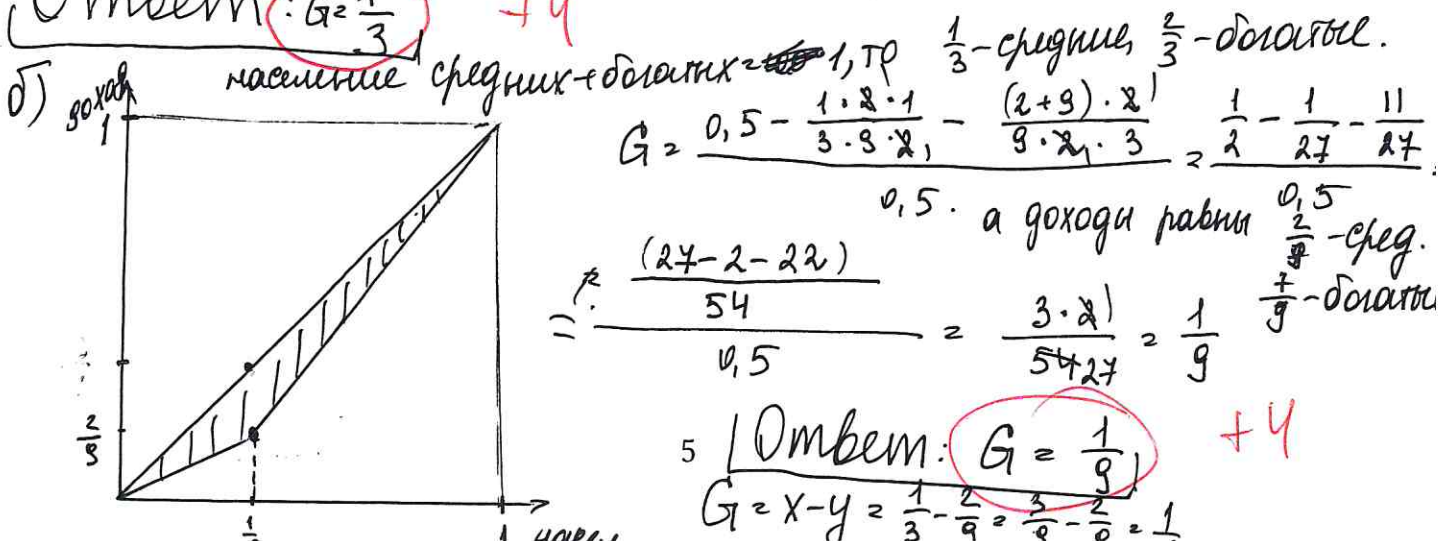 Ответ: G = 1/3 +4
б) население средних+богатых= 1, тр 1/3-средние, 2/3-богатые.
доход
1
G = (0,5 - (1·2·1)/(3·9·2) - ((2+9)·2)/(9·2·3))/0,5 = (1/2 - 1/27 - 11/27)/0,5 =
а доходы равны 2/9-сред.
7/9-богатые
= ((27-2-22)/54)/0,5 = (3·2)/(54 27) = 1/9
2/9
5 Ответ: G = 1/9 +4
G = x-y = 1/3 - 2/9 = 3/9 - 2/9 = 1
1